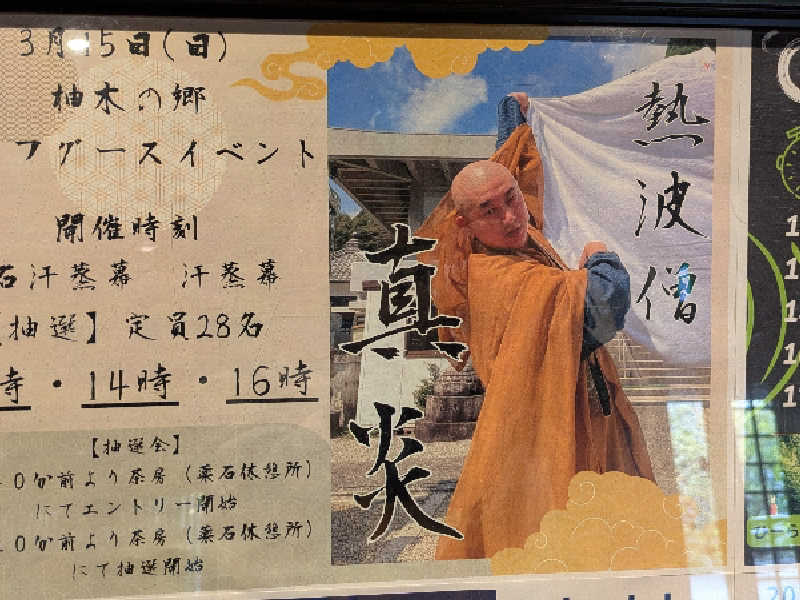 3月15日(日)
柚木の郷
フグースイベント
開催時刻
石汗蒸幕 汗蒸幕
【抽選】定員28名
時・14時・16時
【抽選会】
0分前より茶房(薬石休憩所)
にてエントリー開始
0分前より茶房(薬石休憩所)
にて抽選開始
熱波僧
真炎